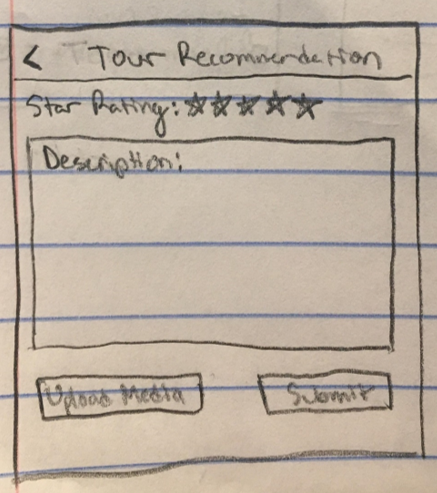 < Tour Recommendation
Star Rating: ☆☆☆☆☆
Description:
Upload Media Submit